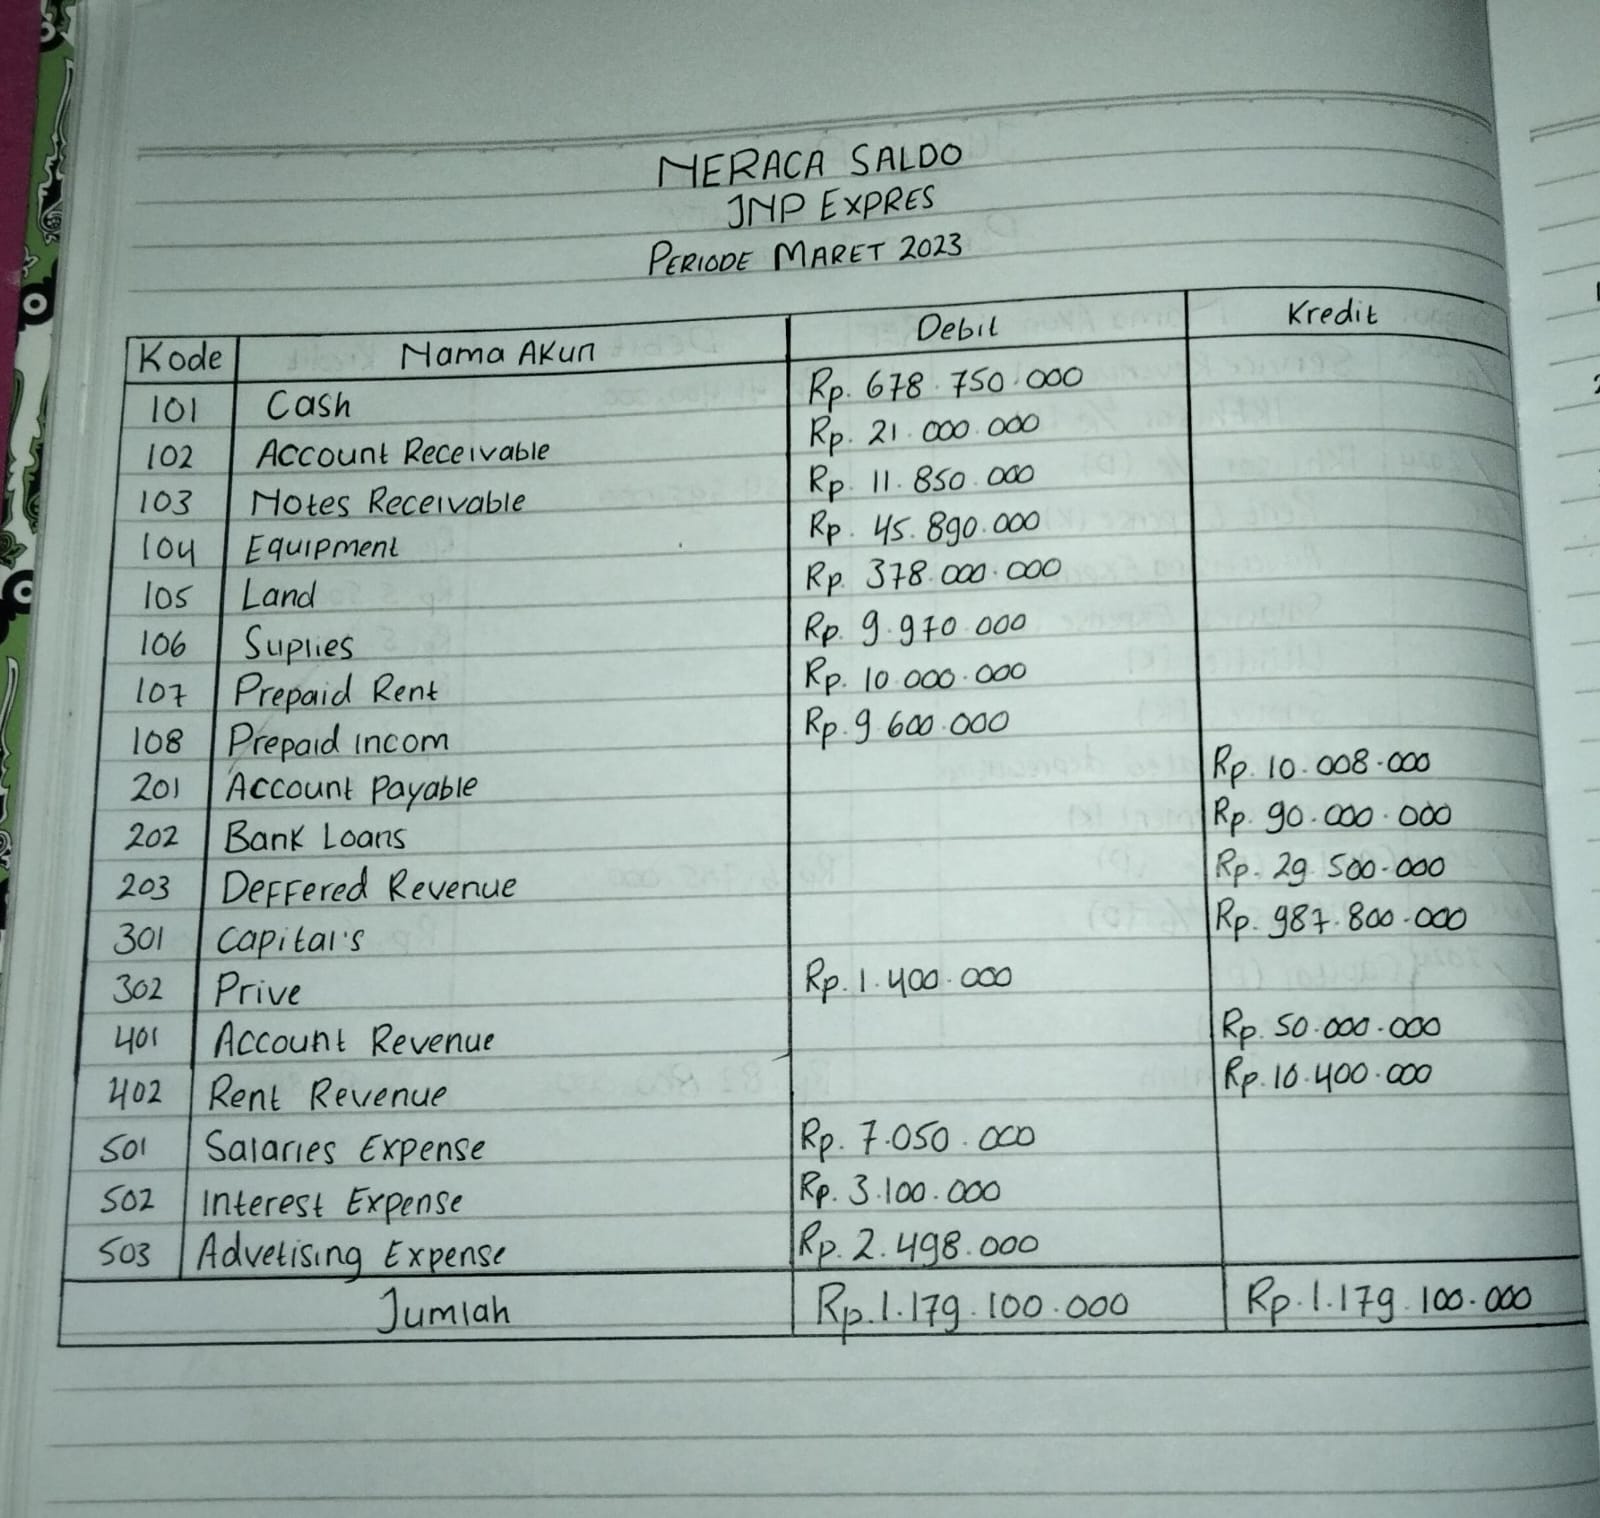 NERACA SALDO
JNP EXPRES
PERIODE MARET 2023
Kode Nama Akun Debit Kredit
101 Cash Rp. 678.750.000
102 Account Receivable Rp. 21.000.000
103 Notes Receivable Rp. 11.850.000
104 Equipment Rp. 45.890.000
105 Land Rp. 378.000.000
106 Suplies Rp. 9.970.000
107 Prepaid Rent Rp. 10.000.000
108 Prepaid incom Rp. 9.600.000
201 Account Payable Rp. 10.008.000
202 Bank Loans Rp. 90.000.000
203 Deffered Revenue Rp. 29.500.000
301 Capital's Rp. 987.800.000
302 Prive Rp. 1.400.000
401 Account Revenue Rp. 50.000.000
402 Rent Revenue Rp. 10.400.000
501 Salaries Expense Rp. 7.050.000
502 Interest Expense Rp. 3.100.000
503 Advetising Expense Rp. 2.498.000
Jumlah Rp. 1.179.100.000 Rp. 1.179.100.000